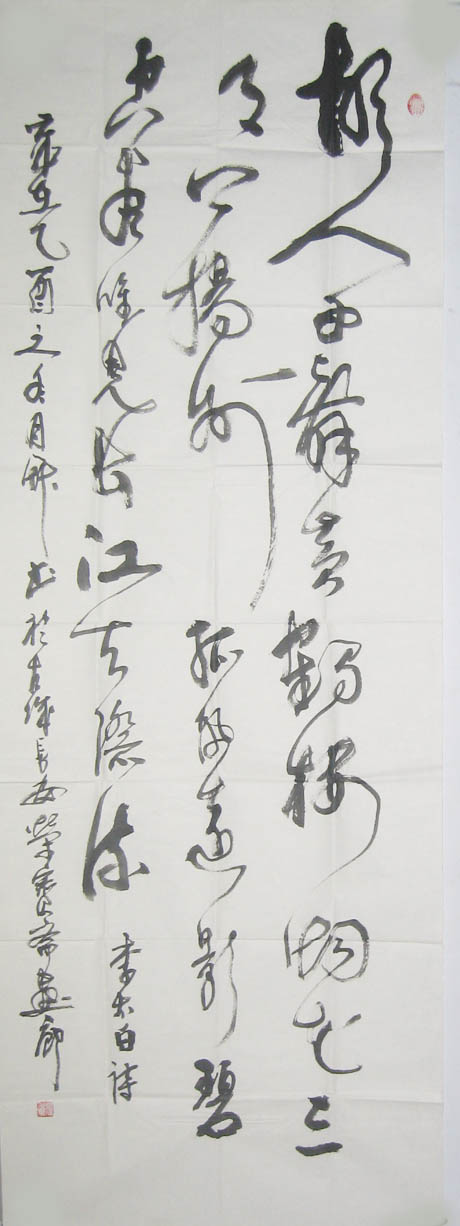 故人西辭黃鶴樓烟花三
月下揚州孤帆遠影碧
空盡唯見長江天際流 李太白詩
歲在乙酉之冬月 書於古城長安榮寶齋畫廊